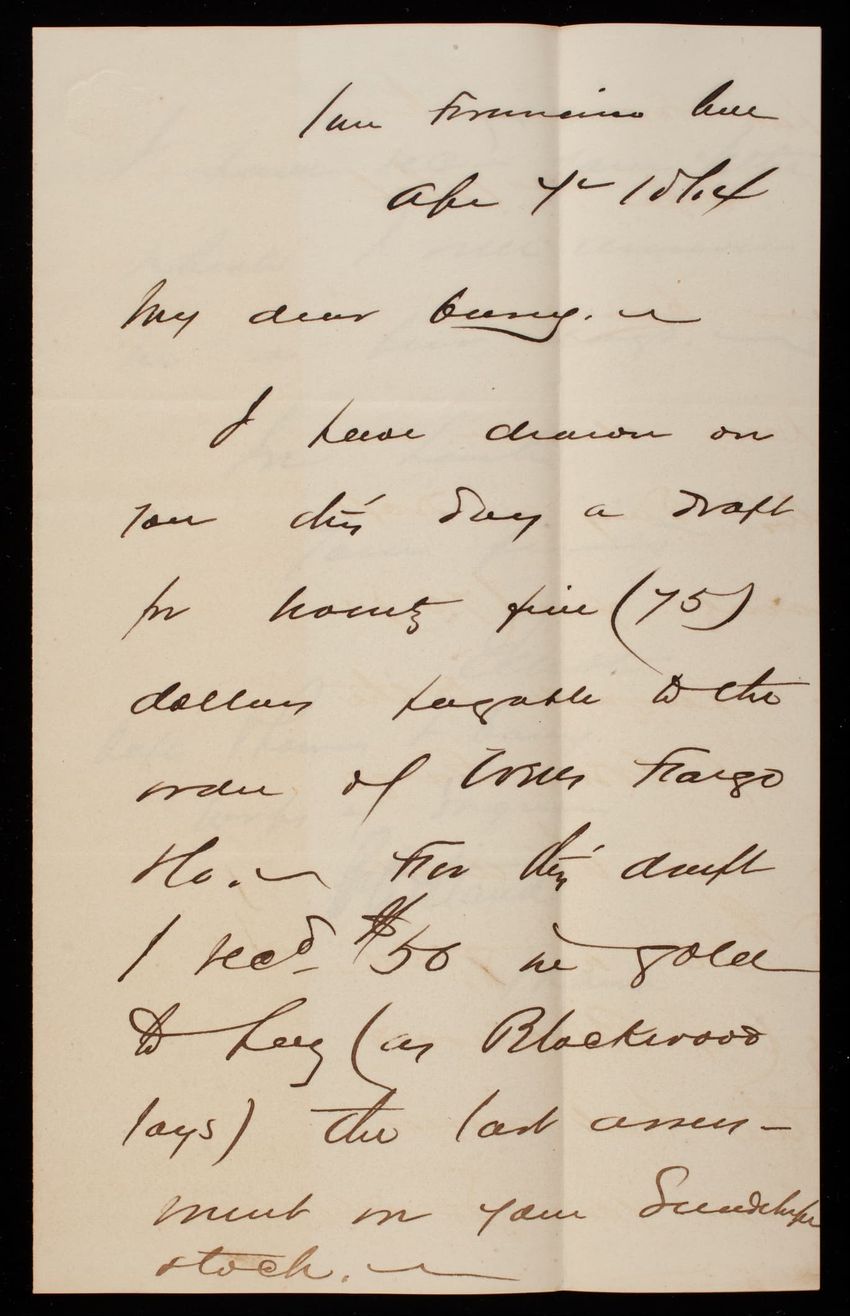 San Francisco Cal
Apr 4th 1864
My dear Casey.
I have drawn on
you this day a draft
for seventy five (75)
dollars payable to the
order of Wells Fargo
& Co. For this draft
I recd $50 in gold
to pay (as Blackwood
says) the last assess-
ment on your Guadalupe
stock.